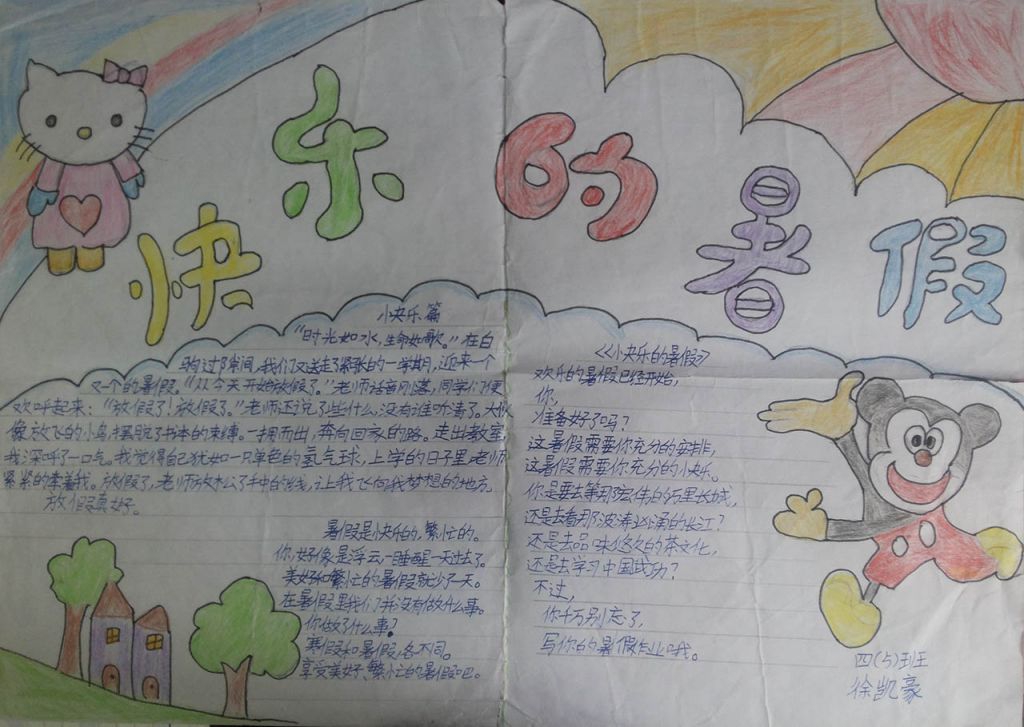 快乐的暑假
小快乐篇
“时光如水,生命如歌。”在白
驹过隙间,我们又送走了紧张的一学期,迎来一个
又一个的暑假。“从今天开始放假了。”老师话音刚落,同学们便
欢呼起来:“放假了!放假了。”老师还说了些什么,没有谁听清了。大伙
像放飞的小鸟,摆脱了书本的束缚。一拥而出,奔向回家的路。走出教室
我深呼了一口气。我觉得自己犹如一只单色的氢气球,上学的日子里,老师
紧紧的牵着我。放假了,老师放松了手中的线,让我飞向我梦想的地方
放假真好。
暑假是快乐的,繁忙的。
你,好像是浮云一睡醒一天过去了。
美好和繁忙的暑假就少了一天。
在暑假里我们并没有做什么事。
你做了什么事?
寒假和暑假,各不同。
享受美好、繁忙的暑假吧。
《小快乐的暑假》
欢乐的暑假已经开始,
你,
准备好了吗?
这暑假需要你充分的安排,
这暑假需要你充分的快乐。
你是要去等那宏伟的万里长城,
还是去看那波涛汹涌的长江?
还是去品味悠久的茶文化,
还是去学习中国武功?
不过,
你千万别忘了,
写你的暑假作业哦。
四(5)班
徐凯豪